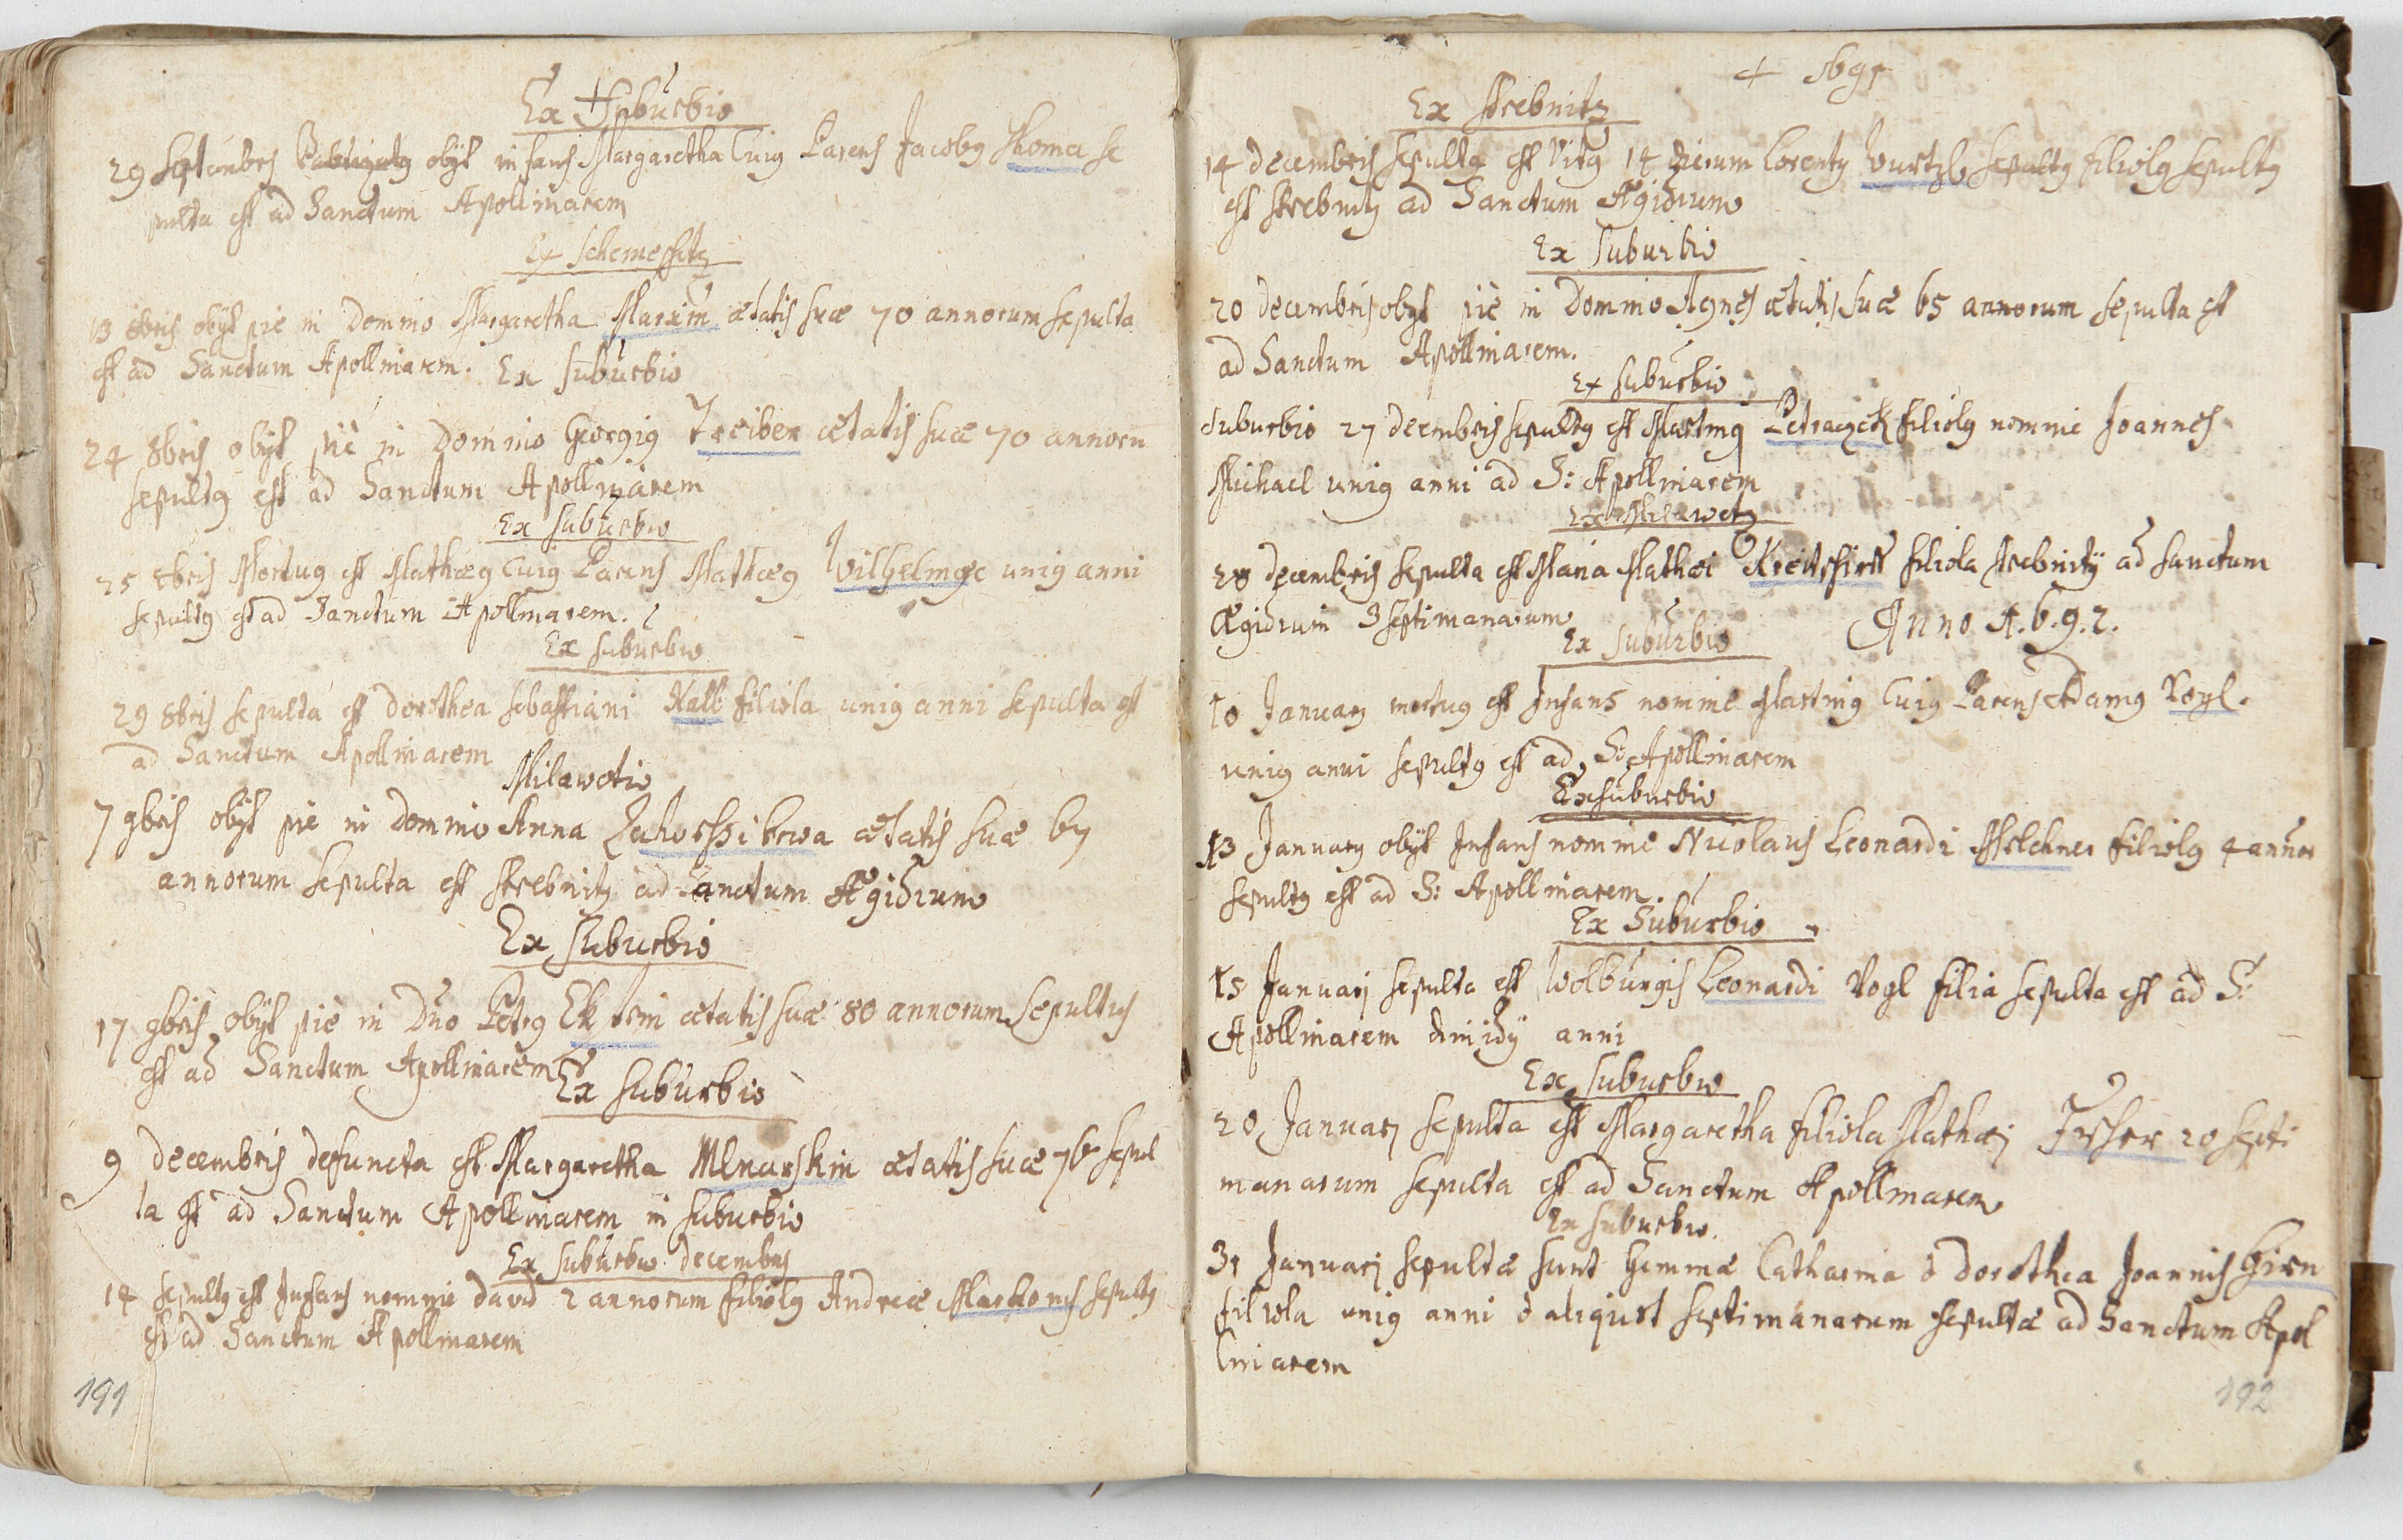 Ex Suburbio
29 Septembris obijt infans Margaretha Cuig Parens Jacobg Thoma se
pulta est ad Sanctum Apollinarem
Ex Schemeschitz
13 8bris obijt pie in Domino Margaretha Marxin ætatis suæ 70 annorum sepulta
est ad Sanctum Apollinarem. Ex Suburbio
24 8bris obijt pie in Domino Georgig Treiber ætatis suæ 70 annoru
sepultg est ad Sanctum Apollinarem
Ex Suburbio
25 8bris Mortug est Mathæg Cuig Parens Mathæg Wilhelmgc unig anni
sepultg est ad Sanctum Apollinarem.
Ex Suburbio
29 8bris sepulta est Dorothea Sebastiani Kalb filiola unig anni sepulta est
ad Sanctum Apollinarem
Milawotio
7 9bris obijt pie in Domino Anna ætatis suæ 67
annorum sepulta est Strebnitz ad Sanctum Ægidium
Ex Suburbio
17 9bris obijt pie in Dño Petrg ætatis suæ 80 annorum Sepultus
est ad Sanctum Apollinarem
Ex Suburbio
9 Decembris defuncta est Margaretha Mlnarskin ætatis suæ 76 sepul
ta est ad Sanctum Apollinarem in suburbio
Ex Suburbio Decembris
14 sepultg est Infans nomine David 2 annorum filiolg Andreæ sepultg
est ad Sanctum Apollinarem
191
4 1691
Ex Strebnitz
14 Decembris sepulta est Vitg 14 Dierum Lorentz Wurtzl sepultg filiolg sepultg
est Strebnitz ad Sanctum Ægidium
Ex Suburbio
20 Decembris obijt pie in Domino Agnes ætatis suæ 65 annorum sepulta est
ad Sanctum Apollinarem.
Ex Suburbio
Suburbio 27 Decembris sepultg est Marting Petraczek filiolg nomine Joannes
Michael unig anni ad S: Apollinarem
Ex Milawetz
28 Decembris sepulta est Maria Mathæi filiola Strebnitij ad Sanctum
Ægidium 3 septimanarum
Anno 1.6.9.2.
Ex Suburbio
10 Januarij mortug est Infans nomine Marting Cuig Parens Adamg Vogl.
unig anni sepultg est ad S: Apollinarem
Ex Suburbio
13 Januarij obijt Infans nomine Nicolaus Leonardi Melchner filiolg 4 annor
sepultg est ad S: Apollinarem.
Ex Suburbio
15 Januarij sepulta est Wolburgis Leonardi Vogl filia sepulta est ad S:
Apollinarem dimidij anni
Ex Suburbio
20 Januarij sepulta est Margaretha filiola Mathæj 20 septi
manarum sepulta est ad Sanctum Apollinarem
Ex Suburbio.
31 Januarij sepultæ sunt Gemmæ Catharina & Dorothea Joannis Girn
filiola unig anni & aliquot septimanarum sepultæ ad Sanctum Apol
linarem
192